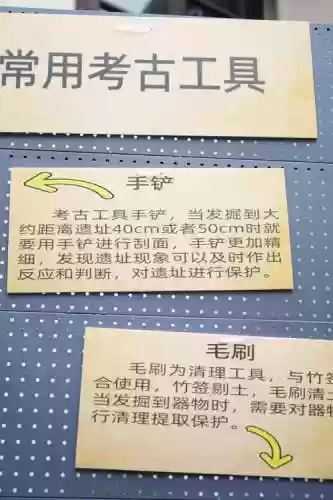 常用考古工具
手铲
考古工具手铲，当发掘到大
约距离遗址40cm或者50cm时就
要用手铲进行刮面，手铲更加精
细，发现遗址现象可以及时作出
反应和判断，对遗址进行保护。
毛刷
毛刷为清理工具，与竹签
合使用，竹签剔土，毛刷清土
当发掘到器物时，需要对器物
行清理提取保护。